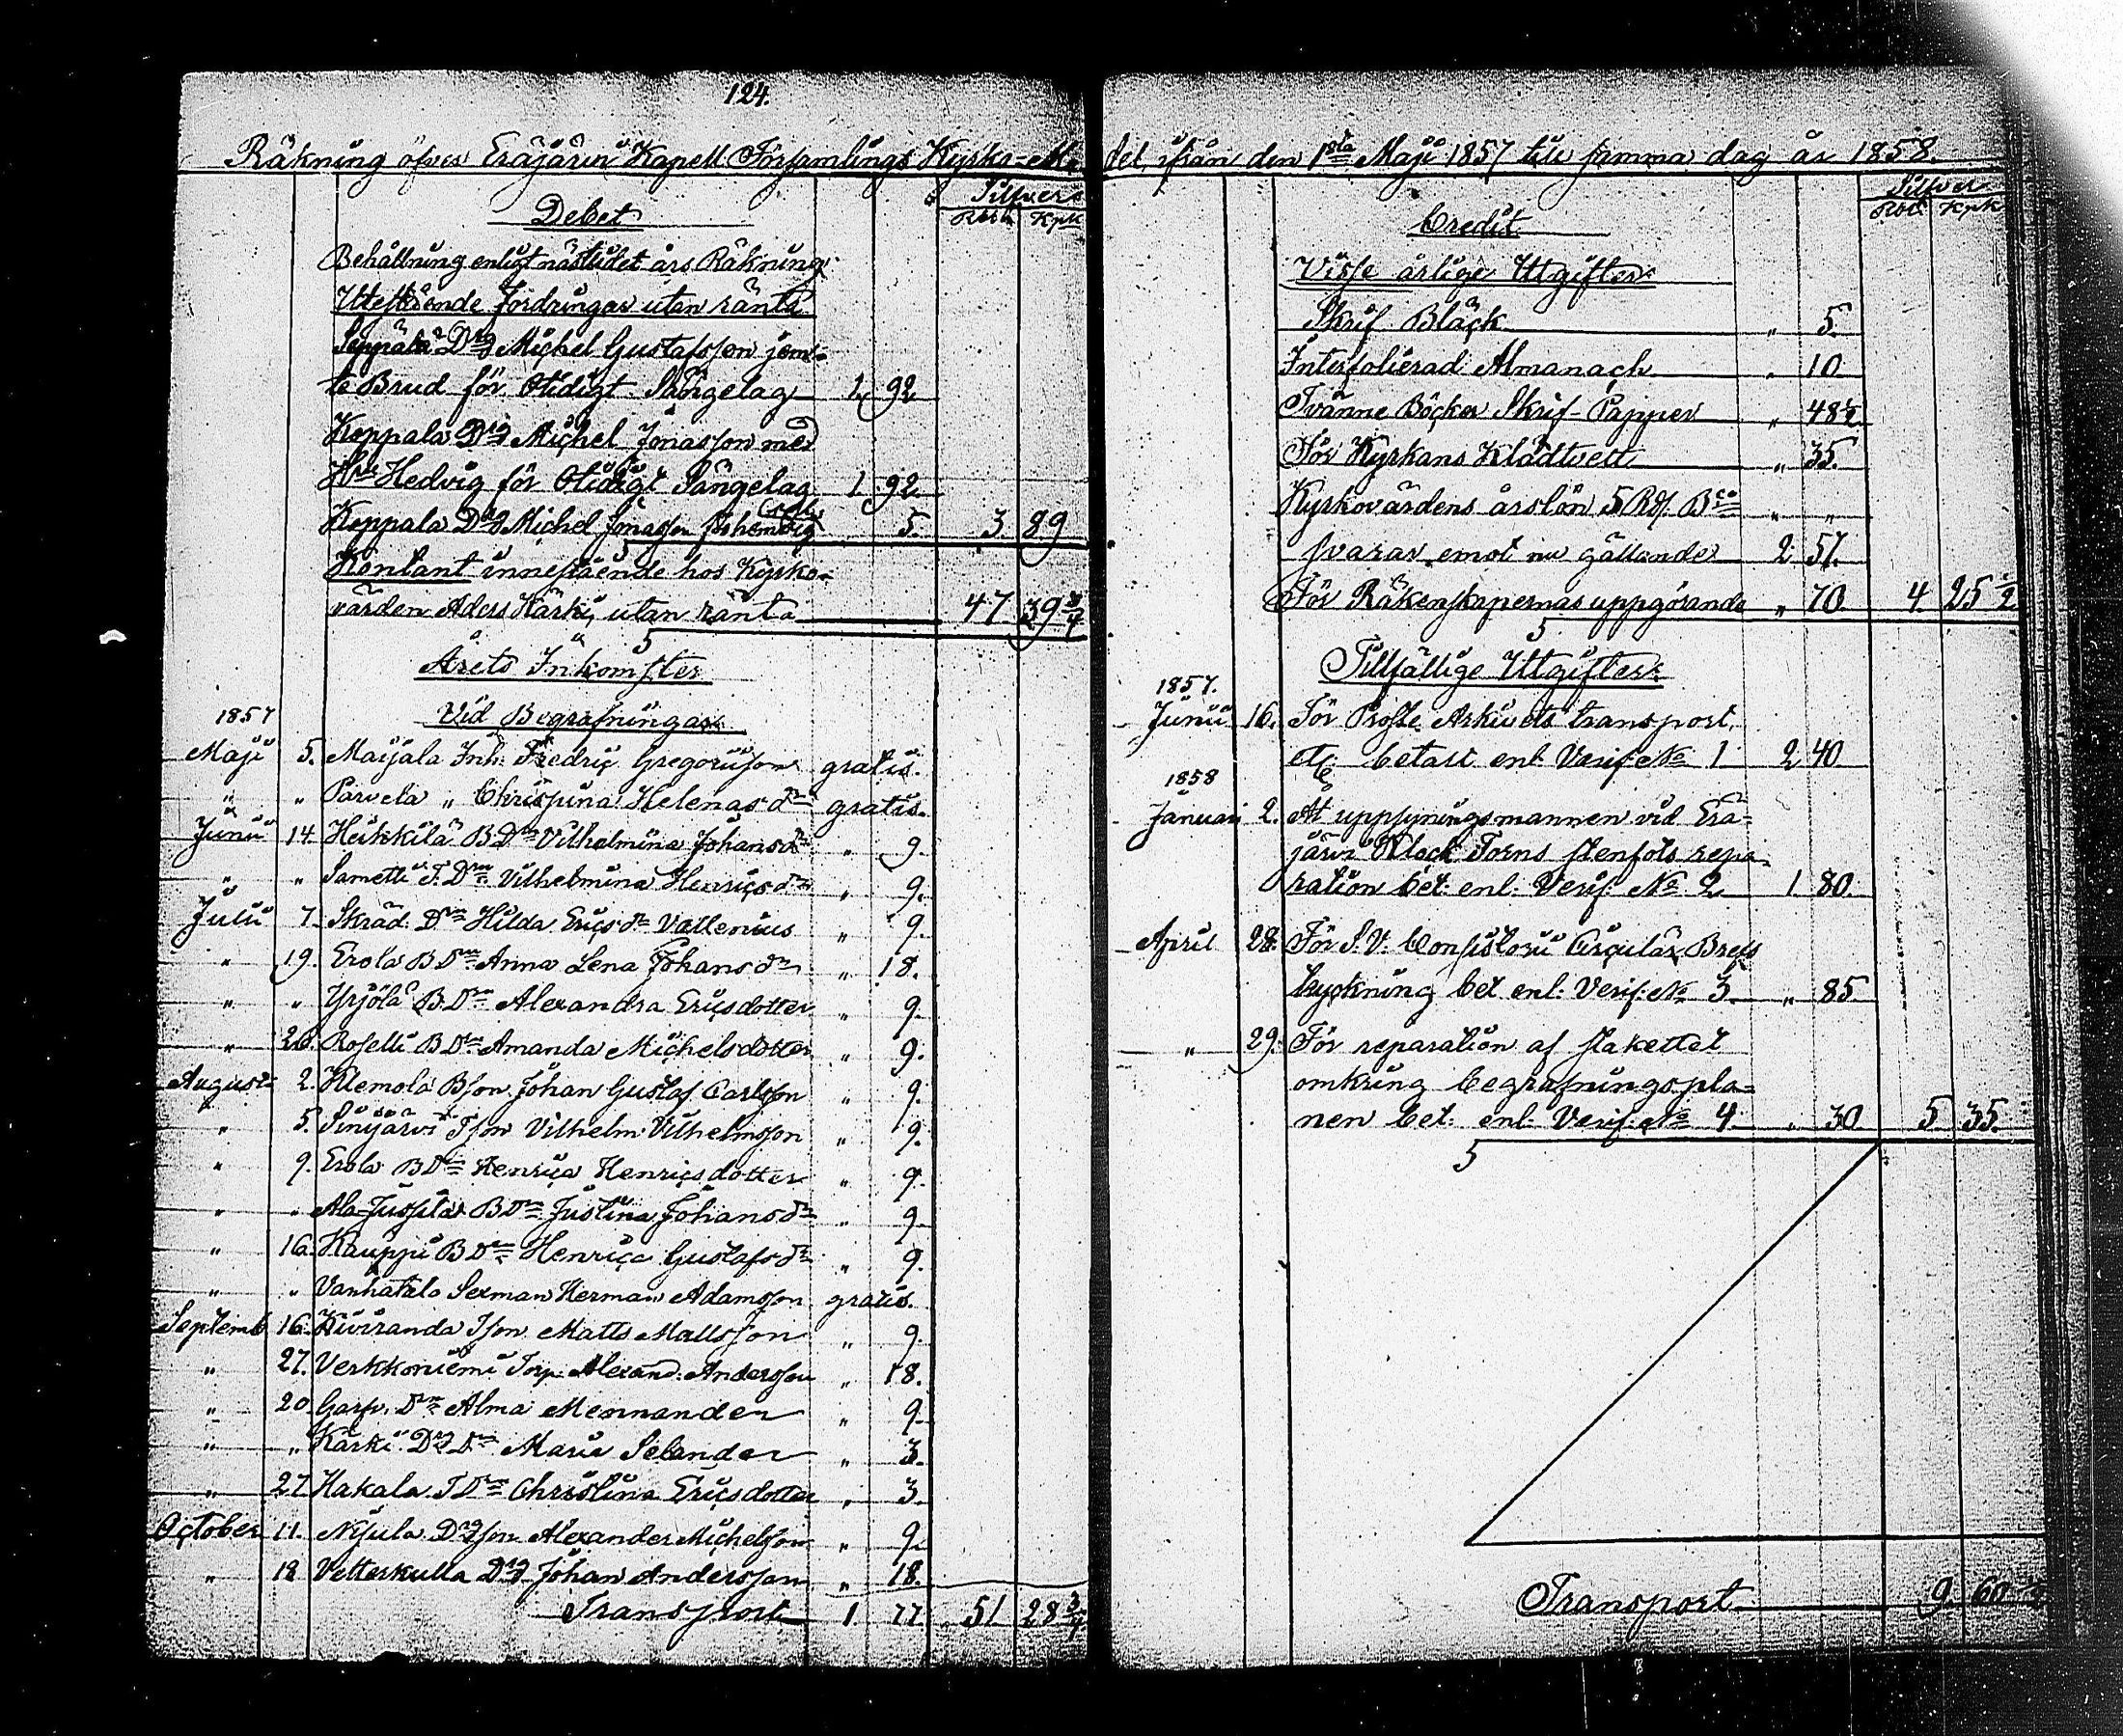 124.
Räkning öfver Eräjärvi Kapell Församlings Kyrko-Me
Debet
Silfver
Rub. Kpk
Behållning enligt nästledet års Räkning
Utestående fordringar utan ränta
Seppälä Drg Michel Gustafsson jem-
te Brud för Otidigt Sängelag 1 92
Koppala Drg Michel Jonasson med
H:u Hedvig för Otidigt Sängelag 1. 92.
Koppala Drg Michel Jonasson 5. 3. 89
Kontant innestående hos Kyrko-
värden Aders Kärki, utan ränta 47 39 3/4
Årets Inkomster
Vid Begrafningar
1857
Maji 5. Maijala Inh: Fredric Gregorisson gratis.
" " Parvela " Chrispina Helenas dr gratis.
Junii 14. Heikkilä B Dr Vilhelmina Johansdr " 9.
" " Sametti T. Dr Vilhelmina Henricsdr " 9.
Julii 7. Skräd. Dr Hilda Ericsdr Vallenius " 9.
" 19. Erola B Dr Anna Lena Johansdr " 18.
" " Yrjölä B. Dr Alexandra Ericsdotter " 9.
" 26. Roselli B Dr Amanda Michelsdotter " 9.
August 2. Klemola Bson Johan Gustaf Carlsson " 9.
" 5. Sinijärvi Tson Vilhelm Vilhelmsson " 9.
" 9. Erola B Dr Henrica Henricsdotter " 9.
" " Ala-Jussila B Dr Justina Johansdr " 9.
" 16. Kauppi B Dr Henrica Gustafsdr " 9.
" " Vanhatalo Sexman Herman Adamsson gratis.
Septemb 16. Kiviranda Tson Matts Mattsson " 9.
" 27. Verkkoniemi Torp. Alexand. Andersson " 18.
" 20. Garfv. Dr Alma Mennander " 9.
" " Kärki Drg Dr Maria Selander " 3.
" 27. Hakala T Dr Christina Ericsdotter " 3.
October 11. Nijula Drgson Alexander Michelsson " 9.
" 18 Vetterkulla Drg Johan Andersson " 18.
Transport 1 77. 51 28 3/4
del ifrån den 1sta Maji 1857 till samma dag år 1858.
Silfver
Rbl Kpk
Credit
Visse årlige Utgifter
Skrif Bläck " 5.
Interfolierad Almanach " 10.
Tvänne Böcker Skrif-Papper " 48 1/2
För Kyrkans Klädtvett " 35.
Kyrkovärdens årslön 5 Rd. Bco " "
svarar emot nu gällande 2 57.
För Räkenskapernas uppgörande " 70. 4. 25 1/2
Tillfällige Utgifter
1857.
Junii 16. För Prosse Arkivets transport,
etc betalt enl. Verif. No 1 2 40
1858
Januari 2. Åt uppsyningsmannen vid Erä-
järvi Klock Torns stenfots repa-
ration bet: enl: Verif: No 2 1 80.
April 28. För S. V. Consistorii Circulär Brefs
tryckning bet enl: Verif: No 3 " 85
" 29. För reparation af stakettet
omkring begrafningspla-
nen bet: enl: Verif: No 4 " 30 5 35.
Transport 9. 60 1/2